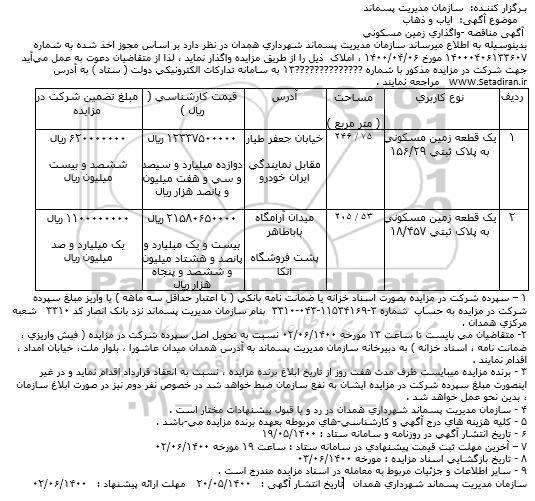 برگزار کننده: سازمان مدیریت پسماند
موضوع آگهی: ایاب و ذهاب
آگهی مناقصه -واگذاري زمین مسکوني
بدینوسیله به اطلاع میرساند سازمان مدیریت پسماند شهرداري همدان در نظر دارد بر اساس مجوز اخذ شده به شماره
۱۴۰۰۰۴۰۶۱۳۳۶۰۷ مورخ ۱۴۰۰/۰۴/۰۶ ، املاک ذیل را از طریق مزایده واگذار نماید ، لذا از متقاضیان دعوت به عمل مي‌آید
جهت شرکت در مزایده مذکور با شماره ??????????????۱۳ به سامانه تدارکات الکترونیکي دولت ( ستاد ) به آدرس
www.Setadiran.ir مراجعه نمایند .
ردیف نوع کاربري مساحت ( متر مربع ) آدرس قیمت کارشناسي ( ریال ) مبلغ تضمین شرکت در مزایده
۱ یک قطعه زمین مسکوني به پلاک ثبتي ۱۵۶/۲۹ ۲۴۶ / ۷۵ خیابان جعفر طیار مقابل نمایندگي ایران خودرو ۱۲۳۳۷۵۰۰۰۰۰ ریال دوازده میلیارد و سیصد و سي و هفت میلیون و پانصد هزار ریال ۶۲۰۰۰۰۰۰۰ ریال ششصد و بیست میلیون ریال
۲ یک قطعه زمین مسکوني به پلاک ثبتي ۱۸/۴۵۷ ۲۰۵ / ۵۳ میدان آرامگاه باباطاهر پشت فروشگاه اتکا ۲۱۵۸۰۶۵۰۰۰۰ ریال بیست و یک میلیارد و پانصد و هشتاد میلیون و ششصد و پنجاه هزار ریال ۱۱۰۰۰۰۰۰۰۰ ریال یک میلیارد و صد میلیون ریال
۱ – سپرده شرکت در مزایده بصورت اسناد خزانه یا ضمانت نامه بانکي ( با اعتبار حداقل سه ماهه ) یا واریز مبلغ سپرده
شرکت در مزایده به حساب شماره ۲-۱۱۵۳۴۱۶۹-۰۴۳-۳۳۱۰ بنام سازمان مدیریت پسماند نزد بانک انصار کد ۳۳۱۰ شعبه
مرکزي همدان .
۲- متقاضیان مي بایست تا ساعت ۱۳ مورخه ۰۲/۰۶/۱۴۰۰ نسبت به تحویل اصل سپرده شرکت در مزایده ( فیش واریزي ،
ضمانت نامه ، اسناد خزانه ) به دبیرخانه سازمان مدیریت پسماند به آدرس همدان میدان عاشورا ، بلوار ملت، خیابان امداد ،
اقدام نمایند .
۳ – برنده مزایده میبایست ظرف مدت هفت روز از تاریخ ابلاغ برنده مزایده ، نسبت به انعقاد قرارداد اقدام نماید و در غیر
اینصورت مبلغ سپرده شرکت در مزایده ایشان به نفع سازمان ضبط خواهد شد در خصوص نفر دوم نیز در صورت ابلاغ سازمان
، بدین نحو عمل خواهد شد .
۴ – سازمان مدیریت پسماند شهرداري همدان در رد و یا قبول پیشنهادات مختار است .
۵ – کلیه هزینه هاي درج آگهي و کارشناسي-هاي مربوطه بعهده برنده مزایده مي-باشد .
۶ – تاریخ انتشار آگهي در روزنامه و سامانه ستاد : ۱۹/۰۵/۱۴۰۰
۷ – آخرین مهلت ثبت قیمت پیشنهادي در سامانه ستاد : ساعت ۱۹ مورخه ۰۲/۰۶/۱۴۰۰
۸ - تاریخ بازگشایي اسناد مزایده : مورخه ۰۳/۰۶/۱۴۰۰
۹ – سایر اطلاعات و جزئیات مربوط به معامله در اسناد مزایده مندرج است .
سازمان مدیریت پسماند شهرداري همدان تاریخ انتشار آگهی : ۲۰/۰۵/۱۴۰۰ مهلت ارائه پیشنهاد : ۰۲/۰۶/۱۴۰۰